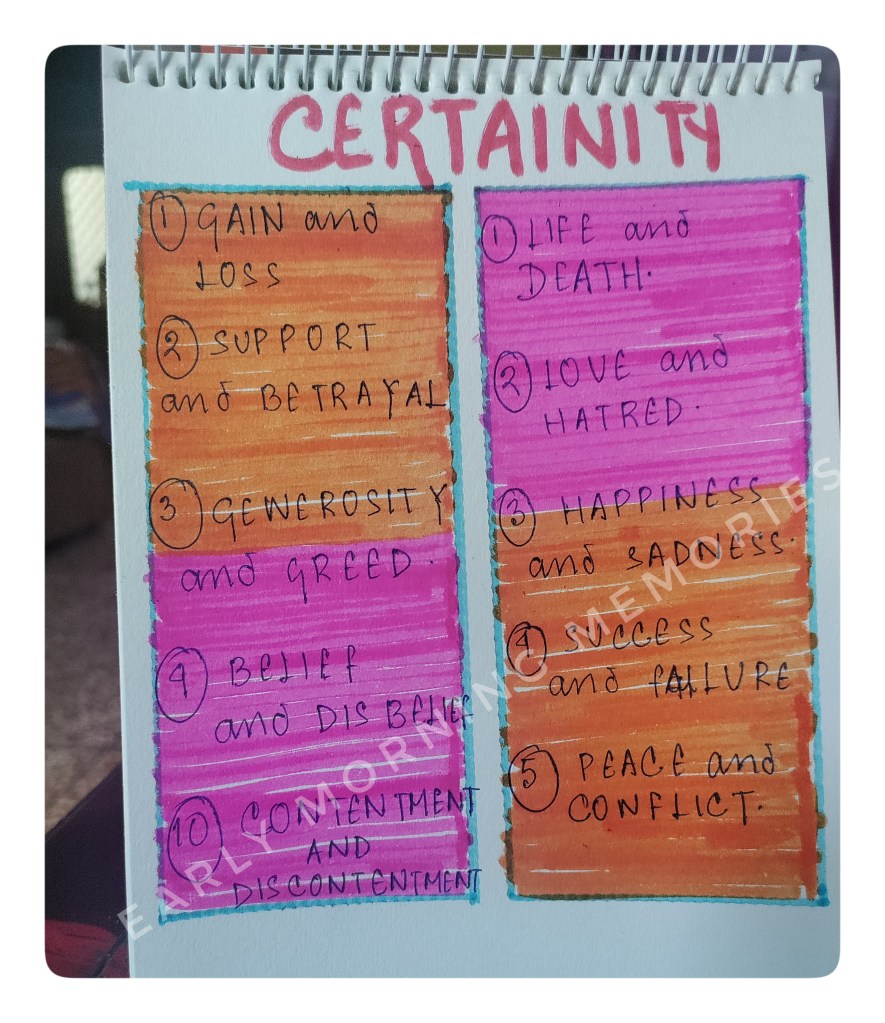 CERTAINITY
① GAIN and
LOSS
② SUPPORT
and BETRAYAL
③ GEWEROSITY
and GREED.
④ BELIEF
and DIS BELIEF
⑩ CONTENTMENT
AND
DISCONTENTMENT
① LIFE and
DEATH.
② LOVE and
HATRED.
③ HAPPINESS
and SADNESS.
④ SUCCESS
and fAILURE
⑤ PEACE and
CONFLICT.
EARLY MORNING MEMORIES